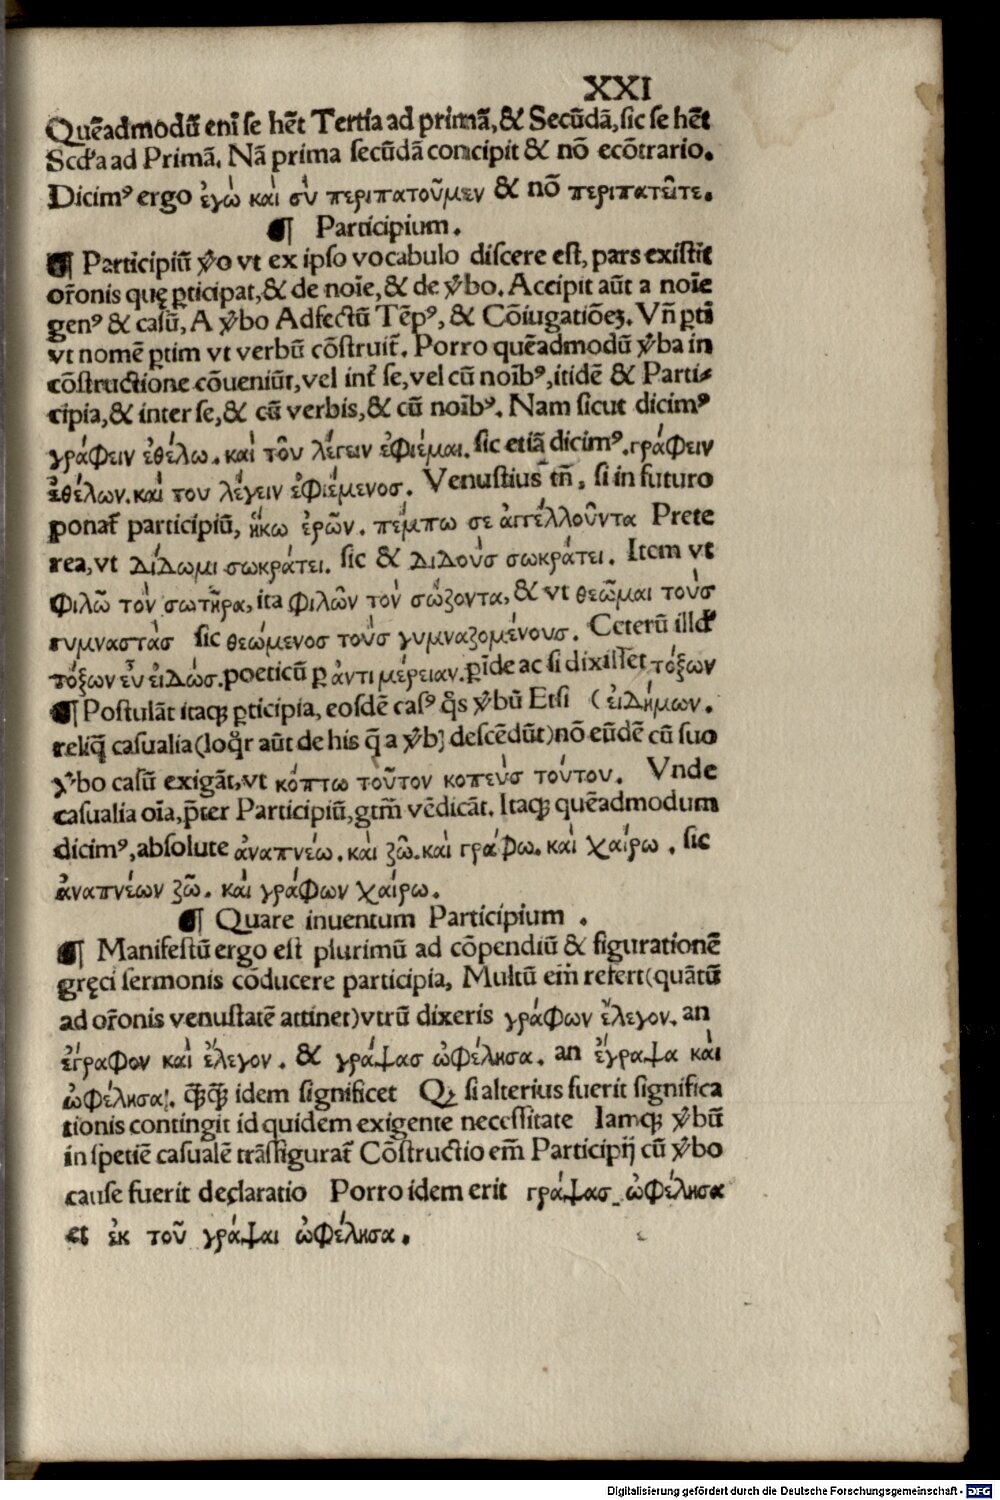 XXI
Quēadmodū eni se hēt Tertia ad primā, & Secūdā, sic se hēt
Scd'a ad Primā. Nā prima secūdā concipit & nō ecōtrario.
Dicimꝰ ergo ἐγὼ καὶ σὺ περιπατοῦμεν & nō περιπατεῖτε.
¶ Participium.
¶ Participiū ỽo vt ex ipso vocabulo discere est, pars existit
or̃onis quę ꝑticipat, & de noīe, & de ỽbo. Accipit aūt a noīe
genꝰ & casū, A ỽbo Adfectū Tēpꝰ, & Cōiugatiōeꝫ. Vñ ꝑti
vt nomē ꝑtim vt verbū cōstruit̃. Porro quēadmodū ỽba in
cōstructione cōueniūt, vel int̃ se, vel cū noībꝰ, itidē & Parti⸗
cipia, & inter se, & cū verbis, & cū noībꝰ. Nam sicut dicimꝰ
γράφειν ἐθέλω. καὶ τοῦ λέγειν ἐφιέμαι. sic etiā dicimꝰ. γράφειν
ἐθέλων. καὶ του λέγειν ἐφιέμενος. Venustius tñ, si in futuro
ponat̃ participiū, ἥκω ἐρῶν. πέμπω σε ἀγγέλλοῦντα Prete
rea, vt δίδωμι σωκράτει. sic & διδοὺσ σωκράτει. Item vt
φιλῶ τὸν σωτῆρα, ita φιλῶν τὸν σώζοντα, & vt θεῶμαι τοὺσ
γυμναστὰσ sic θεώμενοσ τοὺσ γυμναζομένουσ. Ceterū illd'
τόξων εὖ εἰδώσ. poeticū ꝑ ἀντιμέρειαν. ꝑīde ac si dixisset τόξων
¶ Postulāt itaqꝫ ꝑticipia, eosdē casꝰ q̄s ỽbū Etsi ( εἰδήμων.
reliq̄ casualia (loq̄r aūt de his q̄ a ỽbꝫ descēdūt) nō eūdē cū suo
ỽbo casū exigāt, vt κόπτω τοῦτον κοπεὺσ τούτου. Vnde
casualia oīa, p̄ter Participiū, gtm̄ vēdicāt. Itaqꝫ quēadmodum
dicimꝰ, absolute ἀναπνέω. καὶ ζῶ. καὶ γράφω. καὶ χαίρω. sic
ἀναπνέων ζῶ. καὶ γράφων χαίρω.
¶ Quare inuentum Participium .
¶ Manifestū ergo est plurimū ad cōpendiū & figurationē
gręci sermonis cōducere participia, Multū eim̄ refert (quātū
ad or̃onis venustatē attinet) vtrū dixeris γράφων ἔλεγον. an
ἔγραφον καὶ ἔλεγον. & γράψασ ὠφέλησα. an ἔγραψα καὶ
ὠφέλησα. q̄q̄ idem significet Qꝫ si alterius fuerit significa
tionis contingit id quidem exigente necessitate Iamqꝫ ỽbū
in spetiē casualē trāsfigurat̃ Cōstructio em̄ Participij cū ỽbo
cause fuerit declaratio Porro idem erit γράψασ ὠφέλησα
et ἐκ τοῦ γράψαι ὠφέλησα.
Digitalisierung gefördert durch die Deutsche Forschungsgemeinschaft - DFG